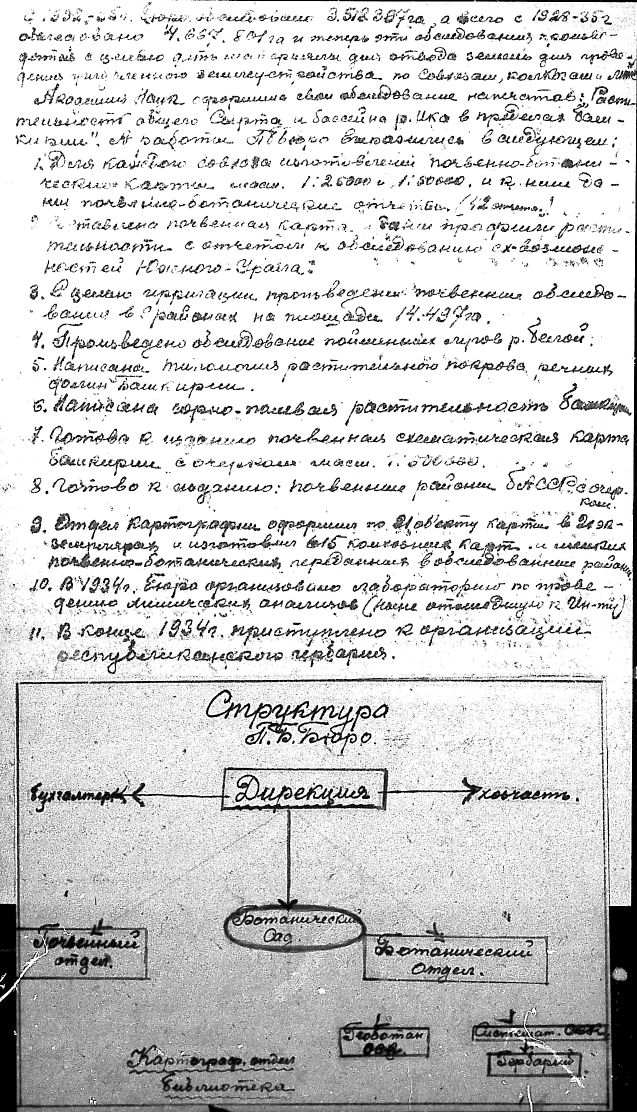 С 1932-35 г. Бюро обследовано 3.512.397 га, а всего с 1928-35 г
обследовано 4.667.801 га и теперь эти обследования
с целью дать материалы для отвода земель для
дения землеустройства по совхозам, колхозам и
Академией Наук оформила свои обследование напечатав: "Расти
тельность общего Сырта и бассейна р. Ика в пределах Баш-
кирии". А работы ПББюро выразились в следующем:
1. Для каждого совхоза изготовлений почвенно-ботани-
ческие карты масш. 1:25000 и 1:50000. и к ним да-
ны почвенно-ботанические отчеты. (12 отчето.)
2. Составлена почвенная карта и даны профили расти-
тельности с отчетом к обследованию сх-возмож-
ностей Южного-Урала.
3. С целью ирригации произведены почвенные обследо-
вания в районах на площади 14.497 га.
4. Произведено обследование пойменных лугов р. Белой.
5. Написана типология растительного покрова речных
долин Башкирии.
6. Написана сорно-полевая растительность Башкирии
7. Готова к изданию почвенная схематическая карта
Башкирии с очерком масш. 1:500000.
8. Готово к изданию: почвенные районы БАССР. с очер-
ком.
9. Отдел Картографии оформил по 21 объекту карты в 2х эк-
земплярах и изготовил 615 колхозных карт. и
почвенно-ботанических переданных в обследованные районы
10. В 1934 г. Бюро организовано лабораторию по прове-
дению химических анализов (ныне отошедшую к Ин-ту)
11. В конце 1934 г. приступлено к организации
республиканского гербария.
Структура
П.Б. Бюро.
Дирекция
Бухгалтерия
хозчасть.
Ботанический
Сад.
Почвенный
отдел.
Ботанический
Отдел.
Геоботан
сек
Систематат. сек
Гербарий
Картограф. отдел
Библиотека